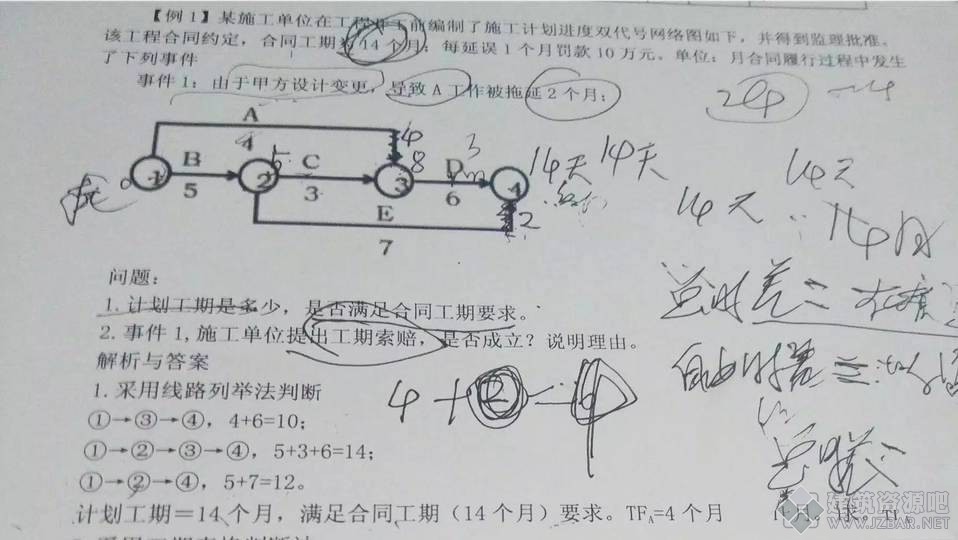 【例1】某施工单位在工程开工前编制了施工计划进度双代号网络图如下，并得到监理批准。
该工程合同约定，合同工期为14个月；每延误1个月罚款10万元。单位：月合同履行过程中发生
了下列事件
事件1：由于甲方设计变更，导致A工作被拖延2个月；
A
4
B
C
D
1
2
3
4
5
3
6
E
7
4
8
3
2
5
0
14天 14天
14天
14天
14个月
总时差＝
自由时差＝
总时差
问题：
1.计划工期是多少，是否满足合同工期要求。
2.事件1,施工单位提出工期索赔，是否成立？说明理由。
解析与答案
1.采用线路列举法判断
①→③→④，4+6=10；
①→②→③→④，5+3+6=14；
①→②→④，5+7=12。
4+②=6
计划工期＝14个月，满足合同工期（14个月）要求。TFA=4个月
建筑资源吧
WWW.JZBAR.NET